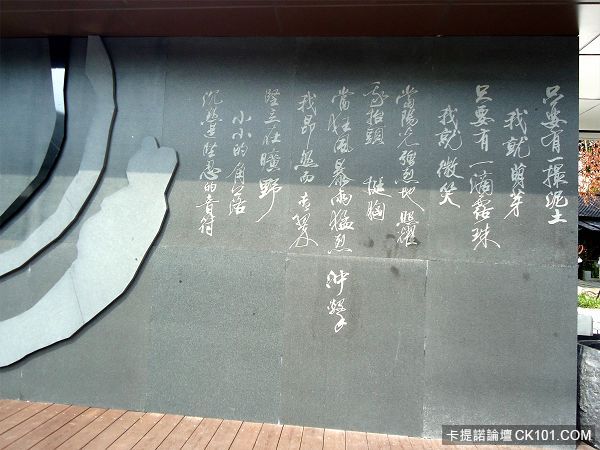 只要有一撮泥土
我就萌芽
只要有一滴露珠
我就微笑
當陽光強烈地照耀
我抬頭 挺胸
當狂風暴雨猛烈沖擊
我昂然而青翠
立在曠野
小小的角落
沉默是堅忍的音符
卡提諾論壇 CK101.COM